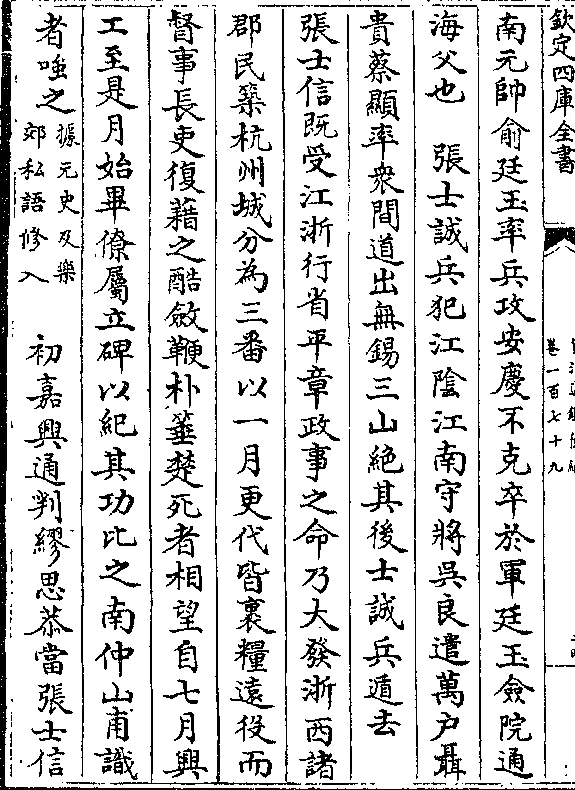 欽定四庫全書
卷一百七十九
南元帥俞廷玉率兵攻安慶不克卒於軍廷玉僉院通
海父也　張士誠兵犯江陰江南守將吳良遣萬户聶
貴蔡顯率衆間道出無錫三山絶其後士誠兵遁去
張士信既受江浙行省平章政事之命乃大發浙西諸
郡民築杭州城分為三番以一月更代皆裹糧遠役而
督事長吏復藉之酷斂鞭朴箠楚死者相望自七月興
工至是月始畢僚屬立碑以紀其功比之南仲山甫識
者嗤之據元史及樂郊私語修入　初嘉興通判繆思恭當張士信